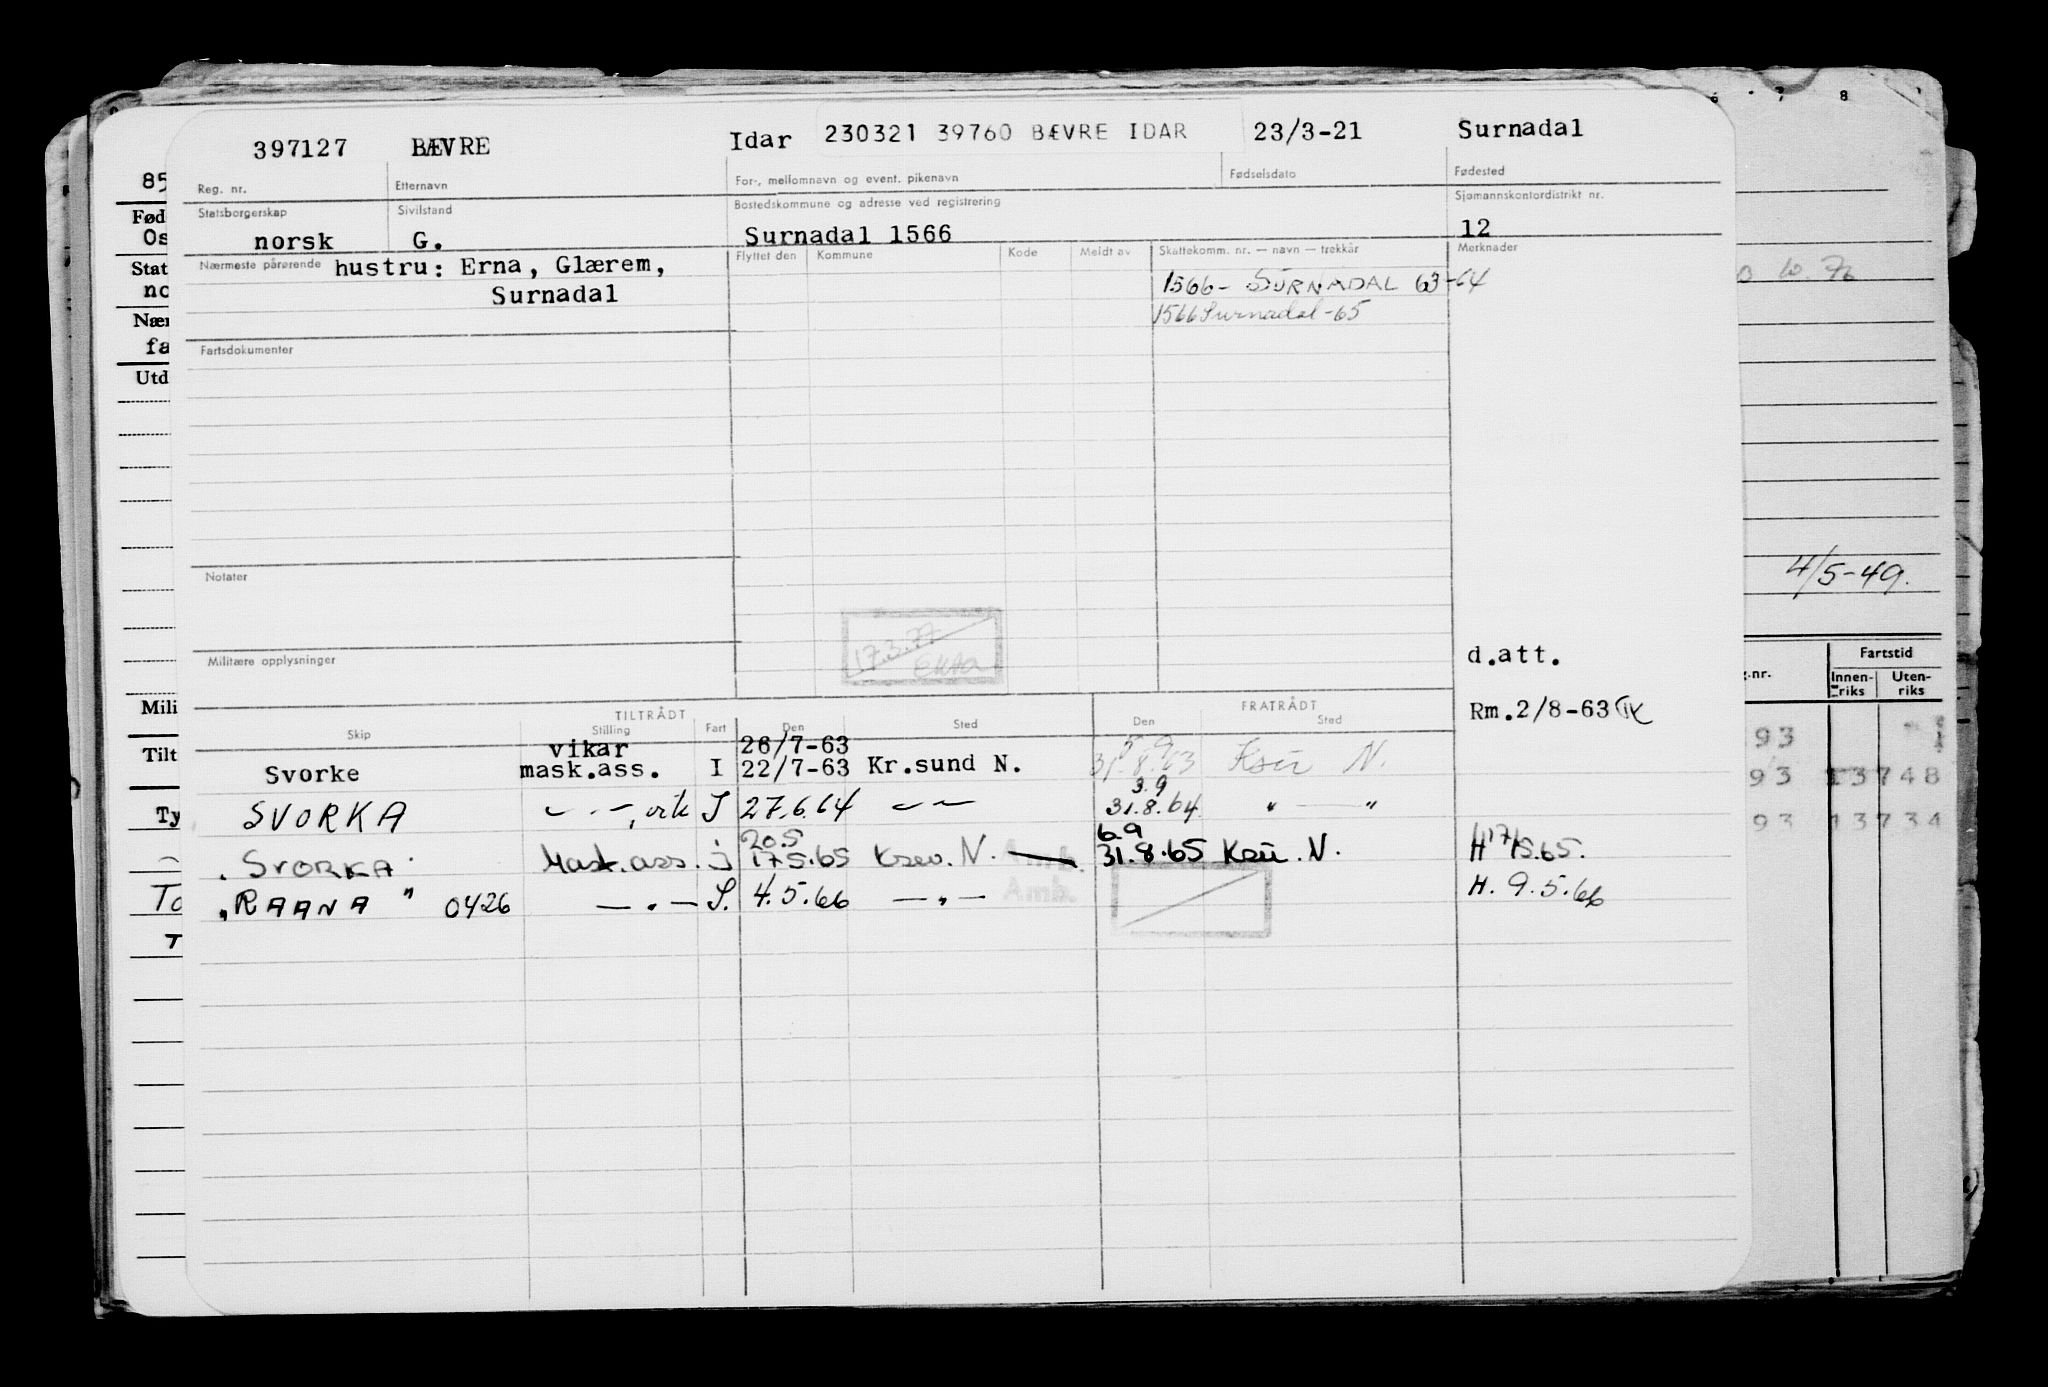 397127 BÆVRE Idar 230321 39760 BÆVRE IDAR 23/3-21 Surnadal
Reg. nr. Etternavn For-, mellomnavn og event. pikenavn Fødselsdato Fødested
Statsborgerskap Sivilstand Bostedskommune og adresse ved registrering Sjømannskontordistrikt nr.
norsk G. Surnadal 1566 12
Nærmeste pårørende hustru: Erna, Glærem, Flyttet den Kommune Kode Meldt av Skattekomm. nr. — navn — trekkår Merknader
Surnadal 1566 - SURNADAL 63-64
1566 Surnadal -65
Fartsdokumenter
Notater
17.3.77
Militære opplysninger
d.att.
Rm.2/8-63
TILTRÅDT FRATRÅDT
Skip Stilling Fart Den Sted Den Sted
vikar 26/7-63 5.9
Svorke mask.ass. I 22/7-63 Kr.sund N. 31.8.63 Ksu N.
3.9
SVORKA — " —, vik I 27.6.64 — " — 31.8.64 " — "
20.5 6.9
"SVORKA" Mask.ass. i 17.5.65 Ksu. N. Amb. 31.8.65 Ksu. N. H 17/5.65.
"RAANA" 0426 — " — I. 4.5.66 — " — Amb. H. 9.5.66
85
Fød
Os
Stat
no
Nær
fa
Utd
Mili
Tilt
Ty
To
T
6 7 8
10.76
4/5-49.
g.nr. Fartstid
Innen-riks Uten-riks
93
93 13748
93 13734